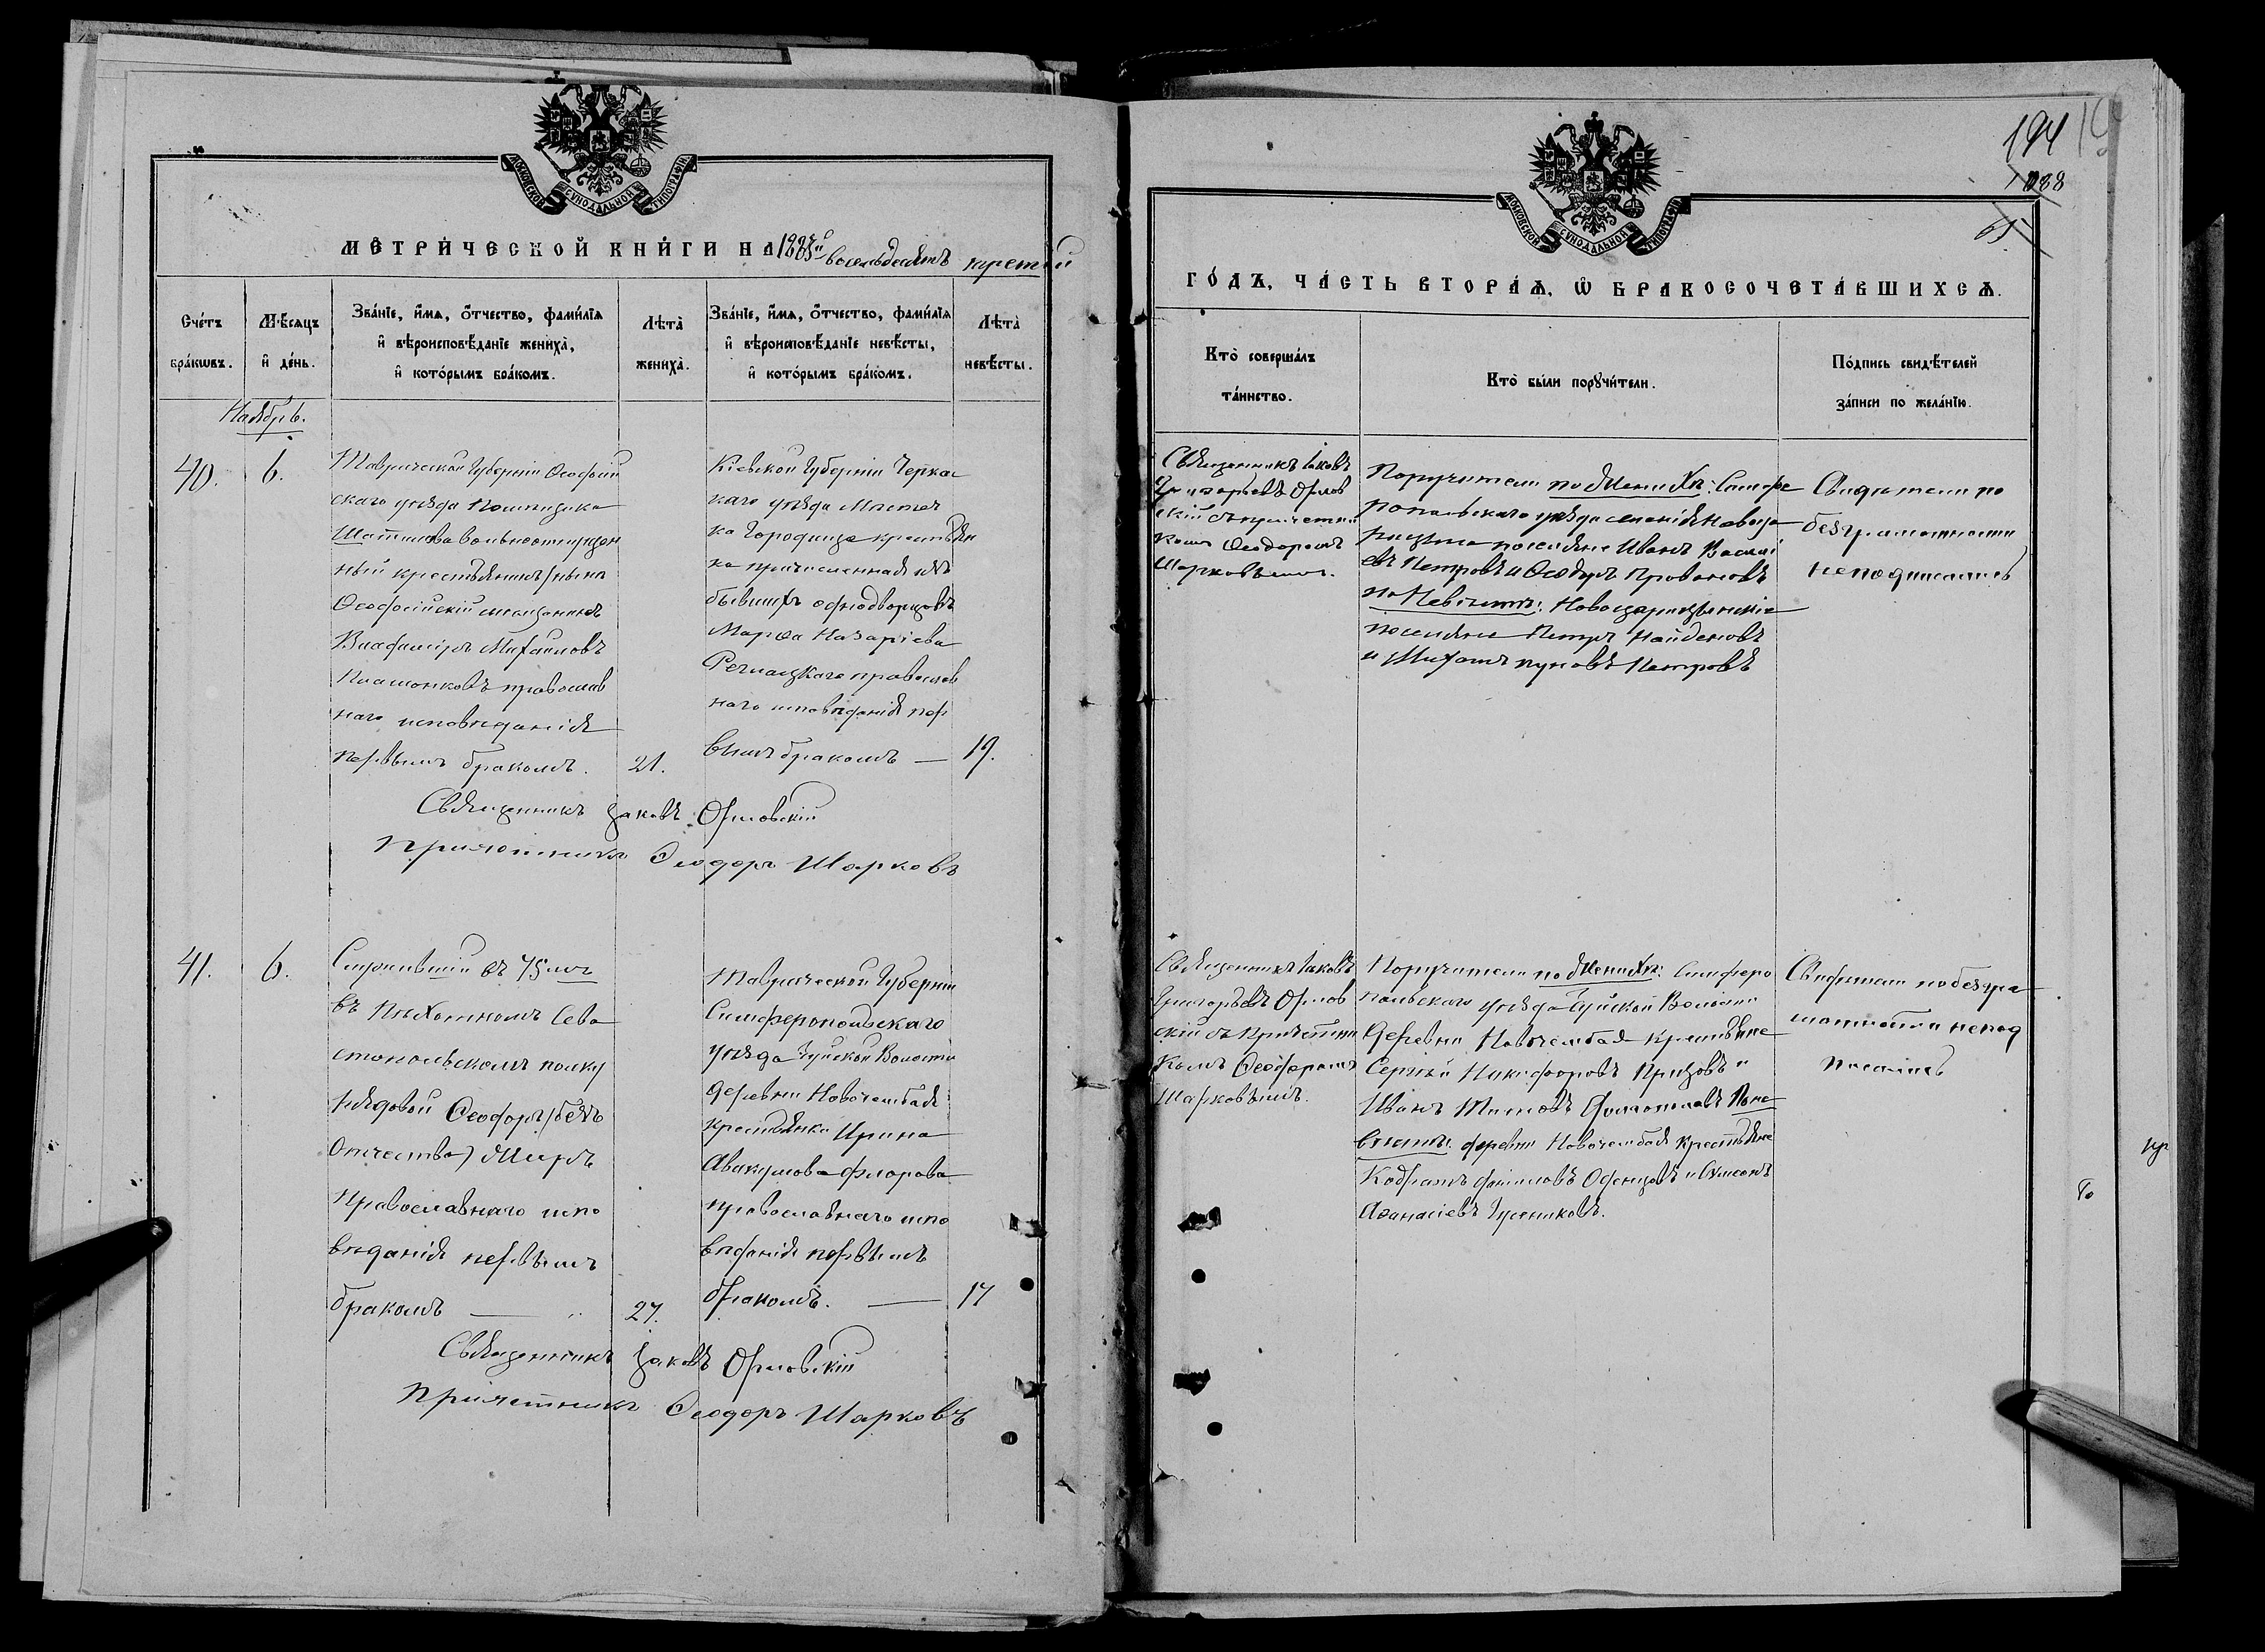 МОСКОВСКОЙ СѴНОДАЛЬНОЙ ТИПОГРАФІИ
МЕТРИ́ЧЕСКОЙ КНИ́ГИ НА 1883й восемьдесятъ третій
Сче́тъ бра́кѡвъ.
Мѣ́сяцъ и҆ де́нь.
Зва́нїе, и҆́мѧ, ѻ҆́тчество, фами́лїѧ
и҆ вѣроисповѣ́данїе жениха̀,
и҆ кото́рымъ бра́комъ.
Лѣта̀ жениха̀.
Зва́нїе, и҆́мѧ, ѻ҆́тчество, фами́лїѧ
и҆ вѣроисповѣ́данїе невѣ́сты,
и҆ кото́рымъ бра́комъ.
Лѣта̀ невѣ́сты.
Ноябрь.
40.
6.
Таврической Губерніи Ѳеодосій
скаго уѣзда Помѣщика
Шатилова вольноотпущен
ный крестьянинъ, нынѣ
Ѳеодосійскій мещанинъ
Владиміръ Михаиловъ
православ
наго исповѣданія
первымъ бракомъ.
21.
Кіевской Губерніи Черкас
каго уѣзда Мѣстеч
ка Городища крестьян
ка причисленная изъ
бывшихъ однодворцовъ
Марѳа Назаріева
православ
наго исповѣданія пер
вымъ бракомъ —
19.
Священникъ Іаковъ Орловскій
Причетникъ Ѳеодоръ Шарковъ
41.
6.
Служившій въ 75мъ
въ Пѣхотномъ Сева
стопольскомъ полку
рядовой Ѳеодоръ (безъ
Отчества)
Православнаго испо
вѣданія первымъ
бракомъ —
27.
Таврической Губерніи
Симферопольскаго
уѣзда Зуйской Волости
деревни
крестьянка Ирина
Авакумова Флорова
православнаго испо
вѣданія первымъ
бракомъ. —
17
Священникъ Іаковъ Орловскій
Причетникъ Ѳеодоръ Шарковъ
194
1088
65
МОСКОВСКОЙ СѴНОДАЛЬНОЙ ТИПОГРАФІИ
ГО́ДЪ, ЧА́СТЬ ВТОРА́Ѧ, Ѡ҆ БРАКОСОЧЕТА́ВШИХСѦ.
Кто̀ соверша́лъ
та́инство.
Кто̀ бы́ли порꙋчи́тели.
По́дпись свидѣ́телей
за́писи по жела́нїю.
Священникъ Іаковъ
Григорьевъ Орлов
скій съ причетни
комъ Ѳеодоромъ
Шарковымъ.
Поручители по Женихѣ: Симфе
ропольскаго уѣзда селенія Новоца
рицына поселяне Иванъ Василі
евъ Петровъ и Ѳеодоръ
по Невѣстѣ: Новоцарицынскіе
поселяне Петръ Найденовъ
и Петровъ
Свидѣтели по
безграмотности
неподписались
Священникъ Іаковъ
Григорьевъ Орлов
скій съ Причетни
комъ Ѳеодоромъ
Шарковымъ.
Поручители по Женихѣ: Симферо
польскаго уѣзда Зуйской Волости
Деревни крестьяне
Сергѣй Никифоровъ и
Иванъ По не
вѣстѣ: деревни крестьяне
и
Аѳанасіевъ Гусѣниковъ.
Свидѣтели по безгра
мотности непод
писались